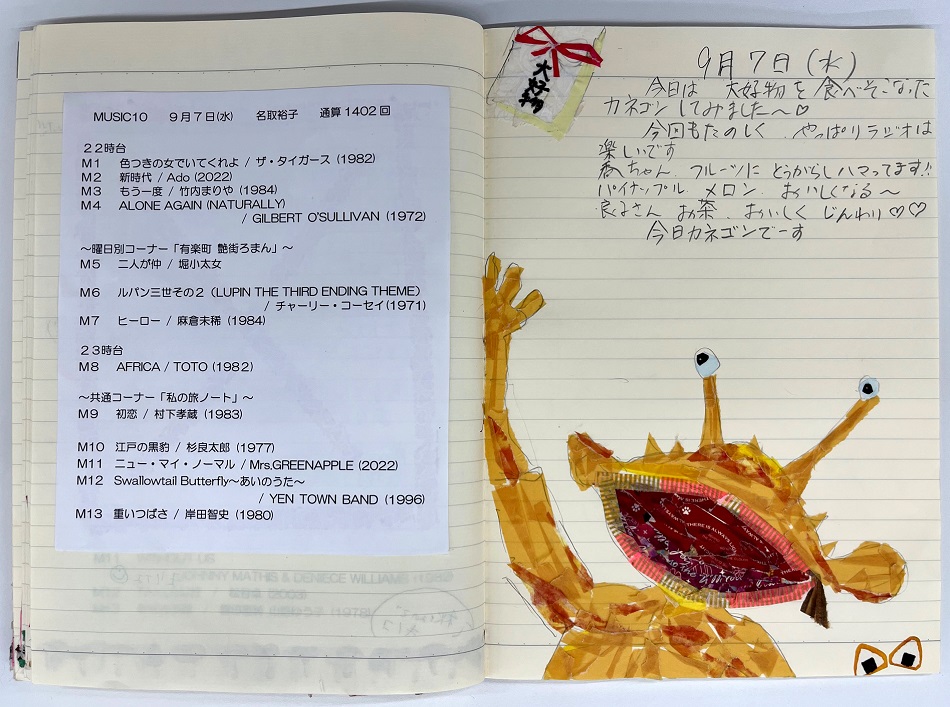 MUSIC10 9月7日(水) 名取裕子 通算1402回
22時台
M1 色つきの女でいてくれよ / ザ・タイガース (1982)
M2 新時代 / Ado (2022)
M3 もう一度 / 竹内まりや (1984)
M4 ALONE AGAIN (NATURALLY)
/ GILBERT O'SULLIVAN (1972)
～曜日別コーナー「有楽町 艶街ろまん」～
M5 二人が仲 / 堀小太女
M6 ルパン三世その2 (LUPIN THE THIRD ENDING THEME)
/ チャーリー・コーセイ(1971)
M7 ヒーロー / 麻倉未稀 (1984)
23時台
M8 AFRICA / TOTO (1982)
～共通コーナー「私の旅ノート」～
M9 初恋 / 村下孝蔵 (1983)
M10 江戸の黒豹 / 杉良太郎 (1977)
M11 ニュー・マイ・ノーマル / Mrs.GREENAPPLE (2022)
M12 Swallowtail Butterfly～あいのうた～
/ YEN TOWN BAND (1996)
M13 重いつばさ / 岸田智史 (1980)
JOHNNY MATHIS & DENIECE WILLIAMS
大好物
9月7日(水)
今日は 大好物を 食べそこなった
カネゴン してみました〜♡
今回もたのしく、やっぱりラジオは
楽しいです
春ちゃん、フルーツに とうがらしハマってます!!
パイナップル、メロン、おいしくなる〜
良子さん お茶、おいしく じんわり♡♡
今日カネゴンでーす
THERE IS ALWAYS